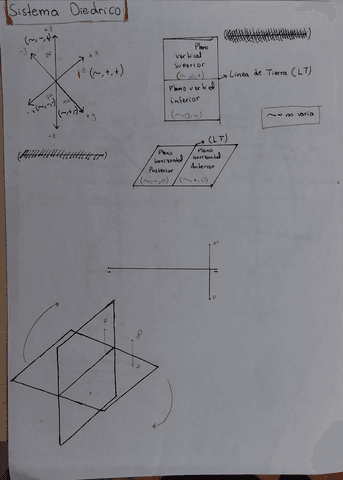 Sistema Diedrico
+z
(~,-,+)
-y
+x
1º (~,+,+)
(~,-,-)
(~,+,-)
-x
+y
-z
Plano
vertical
superior
(~,0,+)
Linea de Tierra (LT)
Plano vertical
inferior
(~,0,-)
~ = no varia
(LT)
Plano
Horizontal
Posterior
(~,-,0)
Plano
Horizontal
Anterior
(~,+,0)
P'
P
P